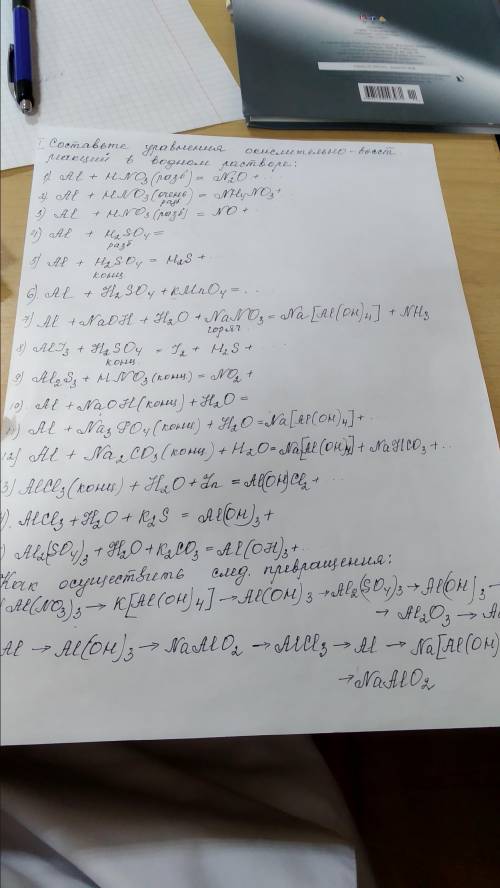 I Составьте уравнения окислительно-восст
реакций в водном растворе:
1) Al + HNO₃ (разб) = N₂O + ..
2) Al + HNO₃ (очень разб) = NH₄NO₃+
3) Al + HNO₃ (разб) = NO + ..
4) Al + H₂SO₄ =
разб
5) Al + H₂SO₄ = H₂S + ..
конц
6) Al + H₂SO₄ + KMnO₄ = ..
7) Al + NaOH + H₂O + NaNO₃ = Na[Al(OH)₄] + NH₃
горяч
8) AlI₃ + H₂SO₄ = I₂ + H₂S + ..
конц
9) Al₂S₃ + HNO₃ (конц) = NO₂ + ..
10) Al + NaOH (конц) + H₂O =
1) Al + Na₃PO₄ (конц) + H₂O = Na[Al(OH)₄] + ..
12) Al + Na₂CO₃ (конц) + H₂O = Na[Al(OH)₄] + NaHCO₃ + ..
3) AlCl₃ (конц) + H₂O + Zn = Al(OH)Cl₂ + ..
). AlCl₃ + H₂O + K₂S = Al(OH)₃ +
) Al₂(SO₄)₃ + H₂O + K₂CO₃ = Al(OH)₃ + ..
Как осуществить след. превращения:
Al(NO₃)₃ → K[Al(OH)₄] → Al(OH)₃ → Al₂(SO₄)₃ → Al(OH)₃ →
→ Al₂O₃ → Al
Al → Al(OH)₃ → NaAlO₂ → AlCl₃ → Al → Na[Al(OH)
→ NaAlO₂